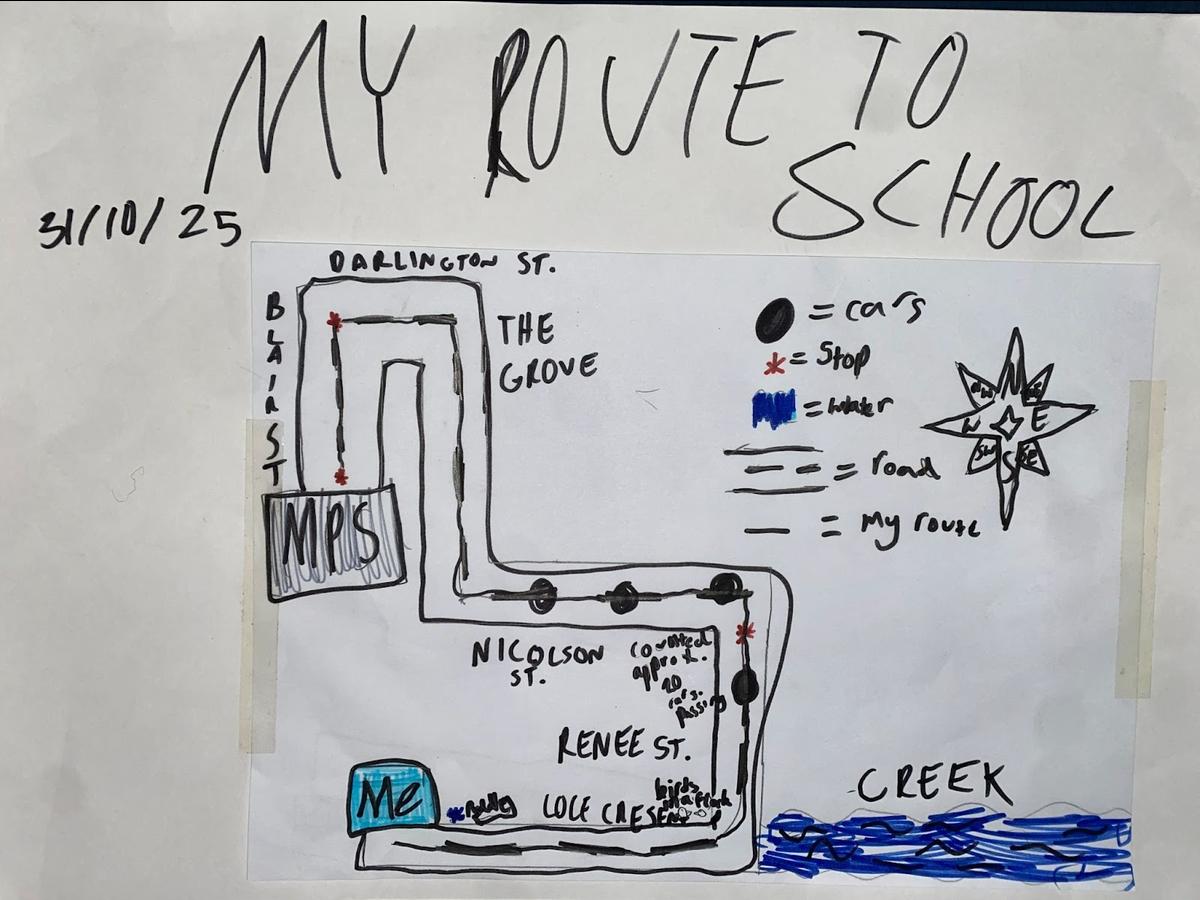 MY ROUTE TO
SCHOOL
31/10/25
DARLINGTON ST.
BLAIR ST
THE
GROVE
= cars
= Stop
= water
= road
= My route
N
NE
E
SE
S
SW
W
NW
MPS
NICOLSON
ST.
counted
approx.
20
cars.
passing
RENEE ST.
Me
LOCE CRESENT
birds
CREEK